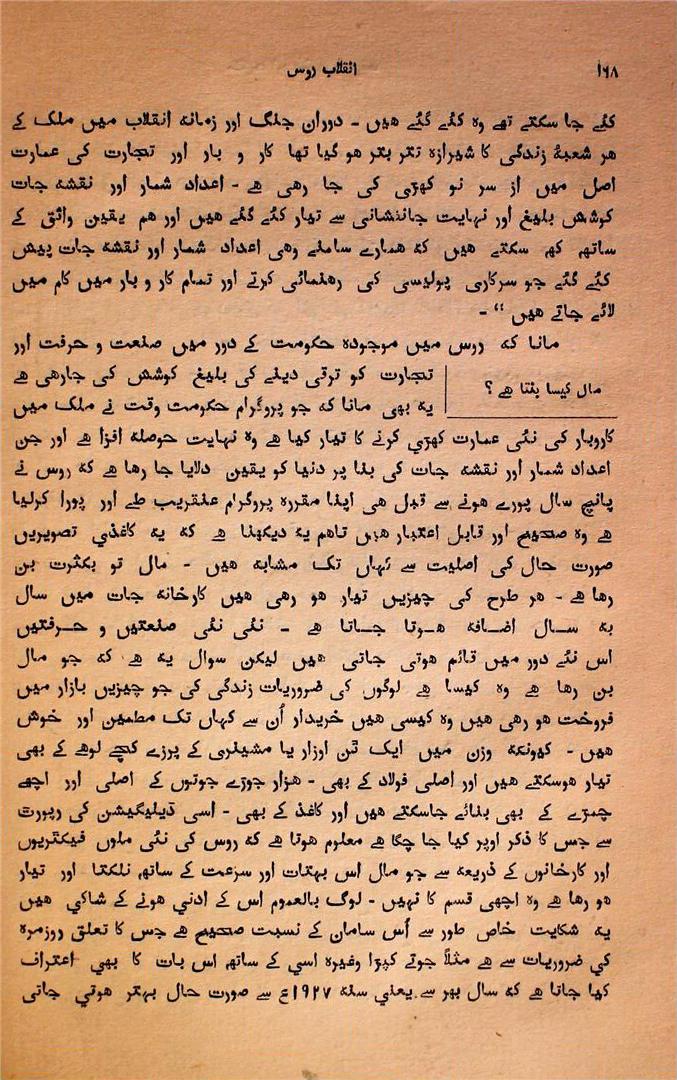 ۱۶۸ انقلاب روس
کئے جا سکتے تھے وہ کئے گئے ھیں - دوران جنگ اور زمانہ انقلاب میں ملک کے
ھر شعبۂ زندگی کا شیرازہ تتر بتر ھو گیا تھا کار و بار اور تجارت کی عمارت
اصل میں از سر نو کھڑی کی جا رھی ھے - اعداد شمار اور نقشہ جات
کوشش بلیغ اور نہایت جانفشانی سے تیار کئے گئے ھیں اور ھم یقین واثق کے
ساتھہ کہہ سکتے ھیں کہ ھمارے سامنے وھی اعداد شمار اور نقشہ جات پیش
کئے گئے جو سرکاری پولیسی کی رھنمائی کرتے اور تمام کار و بار میں کام میں
لائے جاتے ھیں “ -
مانا کہ روس میں موجودہ حکومت کے دور میں صنعت و حرفت اور
مال کیسا بنتا ھے ؟
تجارت کو ترقی دینے کی بلیغ کوشش کی جارھی ھے
یہ بھی مانا کہ جو پروگرام حکومت وقت نے ملک میں
کاروبار کی نئی عمارت کھڑی کرنے کا تیار کیا ھے وہ نہایت حوصلہ افزا ھے اور جن
اعداد شمار اور نقشہ جات کی بنا پر دنیا کو یقین دلایا جا رھا ھے کہ روس نے
پانچ سال پورے ھونے سے قبل ھی اپنا مقررہ پروگرام عنقریب طے اور پورا کرلیا
ھے وہ صحیح اور قابل اعتبار ھیں تاھم یہ دیکھنا ھے کہ یہ کاغذي تصویریں
صورت حال کی اصلیت سے کہاں تک مشابہ ھیں - مال تو بکثرت بن
رھا ھے - ھر طرح کی چیزیں تیار ھو رھی ھیں کارخانہ جات میں سال
بہ ســال اضــافہ ھــوتا جــاتا ھے - نئی نئی صنعتیں و حــرفتیں
اس نئے دور میں قائم ھوتی جاتی ھیں لیکن سوال یہ ھے کہ جو مال
بن رھا ھے وہ کیسا ھے لوگوں کی ضروریات زندگی کی جو چیزیں بازار میں
فروخت ھو رھی ھیں وہ کیسی ھیں خریدار اُن سے کہاں تک مطمئن اور خوش
ھیں - کیونکہ وزن میں ایک ٹن اوزار یا مشینری کے پرزے کچے لوھے کے بھی
تیار ھوسکتے ھیں اور اصلی فولاد کے بھی - ھزار جوڑے جوتوں کے اصلی اور اچھے
چمڑے کے بھی بنائے جاسکتے ھیں اور کاغذ کے بھی - اسی ڈیلیگیشن کی رپورٹ
سے جس کا ذکر اوپر کیا جا چکا ھے معلوم ھوتا ھے کہ روس کی نئی ملوں فیکٹریوں
اور کارخانوں کے ذریعہ سے جو مال اس بہتات اور سرعت کے ساتھہ نکلتا اور تیار
ھو رھا ھے وہ اچھی قسم کا نہیں - لوگ بالعموم اس کے ادنیٰ ھونے کے شاکي ھیں
یہ شکایت خاص طور سے اُس سامان کے نسبت صحیح ھے جس کا تعلق روزمرہ
کي ضروریات سے ھے مثلاً جوتے کپڑا وغیرہ اسی کے ساتھہ اس بات کا بھي اعتراف
کیا جاتا ھے کہ سال بھر سے یعني سنہ ۱۹۲۷ع سے صورت حال بہتر ھوتي جاتی